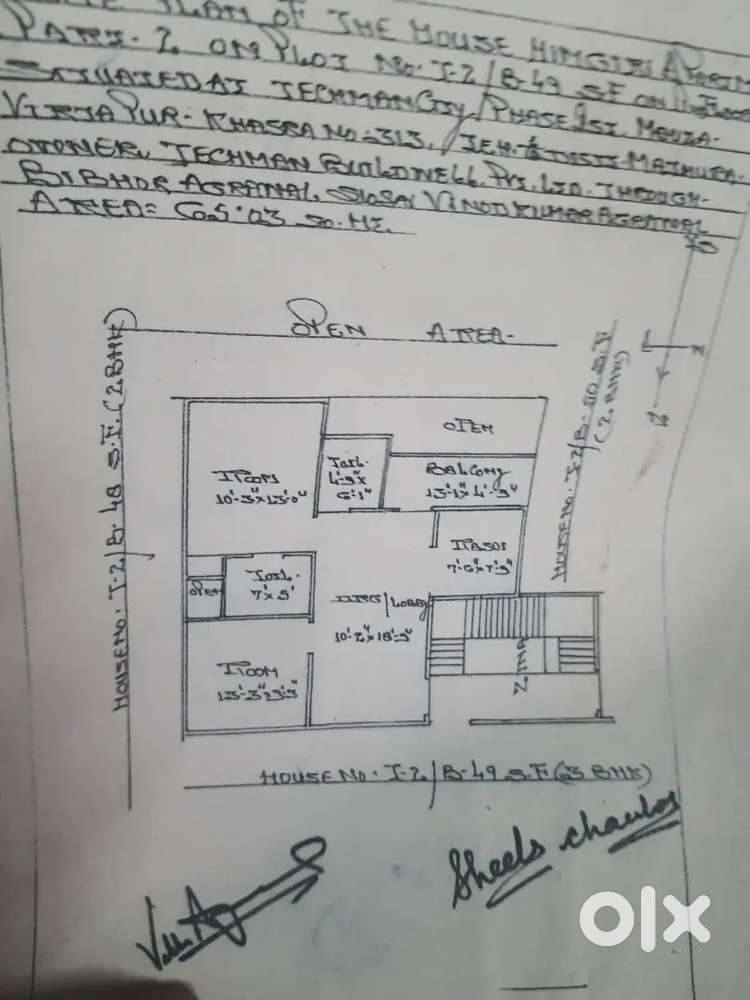 PLAN OF THE HOUSE HIMGIRI APARTM
PART-2 ON PLOT NO. I-2/B-49 S.F ON
SITUATED AT TECHMAN CITY, PHASE IST MAUZA-
VIRJAPUR- KHASRA NO-313, TEH. & DISTT-MATHURA.
OWNER, TECHMAN BUILDWELL PVT. LTD. THROUGH-
BIBHOR AGRAWAL S/O SRI VINOD KUMAR AGRAWAL
AREA= SQ. MT.
OPEN AREA-
HOUSE NO. I-2/B-48 S.F. (2 BHK)
HOUSE NO. I-2/B-50 S.F
(2 BHK)
N
OPEN
ROOM
10'-3"x13'-0"
TOIL.
4'-9"x
6'-1"
BALCONY
13'-1"x4'-9"
RASOI
7'-6"x7'-9"
OPEN
TOIL.
7'x5'
DING/LOBBY
10'-2"x18'-9"
ROOM
ZINA
HOUSE NO. I-2/B-49 S.F. (3 BHK)
Sheela chawla
olx